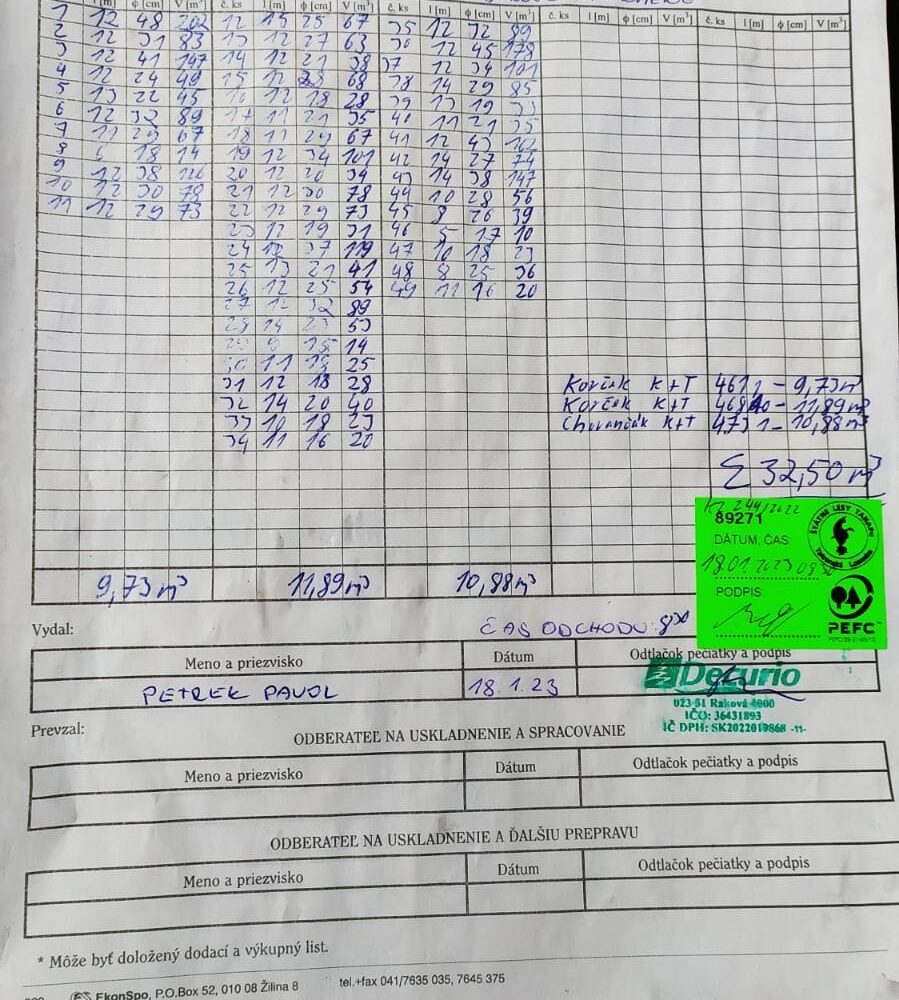 č. ks l [m] ϕ [cm] V [m³] č. ks l [m] ϕ [cm] V [m³] č. ks l [m] ϕ [cm] V [m³]
1 12 48 202 12 13 25 67 35 12 32 89
2 12 31 83 13 12 27 63 36 12 45 178
3 12 41 147 14 12 21 38 37 12 34 101
4 12 24 49 15 12 28 68 38 14 29 85
5 13 22 45 16 12 18 28 39 13 19 33
6 12 32 89 17 11 21 35 40 11 21 35
7 11 29 67 18 11 29 67 41 12 43
8 18 14 19 12 34 101 42 14 27 74
9 12 38 126 20 12 20 34 43 14 38 147
10 12 30 78 21 12 30 78 44 10 28 56
11 12 29 73 22 12 29 73 45 8 26 39
23 12 19 31 46 5 17 10
24 37 119 47 10 18 23
25 13 21 41 48 8 25 36
26 12 25 54 49 11 16 20
27 12 32 89
28 14 23 53
29 15 14
30 11 18 25
31 12 18 28 Korčák K+T 461 - 9,73m³
32 14 20 40 Korčák K+T 11,89m³
33 10 18 23 K+T 4731 - 10,88m³
34 11 16 20
Σ 32,50 m³
244/2022
89271
DÁTUM, ČAS
18.01.2023
PODPIS
ŠTÁTNE LESY TANAPU
PEFC™
9,73m³ 11,89m³ 10,88m³
Vydal: ČAS ODCHODU
Meno a priezvisko Dátum Odtlačok pečiatky a podpis
PETREK PAVOL 18.1.23 Decurio
023 51 Raková 4000
IČO: 36431893
IČ DPH: SK2022019868 -11-
Prevzal:
ODBERATEĽ NA USKLADNENIE A SPRACOVANIE
Meno a priezvisko Dátum Odtlačok pečiatky a podpis
ODBERATEĽ NA USKLADNENIE A ĎALŠIU PREPRAVU
Meno a priezvisko Dátum Odtlačok pečiatky a podpis
* Môže byť doložený dodací a výkupný list.
EkonSpo, P.O.Box 52, 010 08 Žilina 8 tel.+fax 041/7635 035, 7645 375